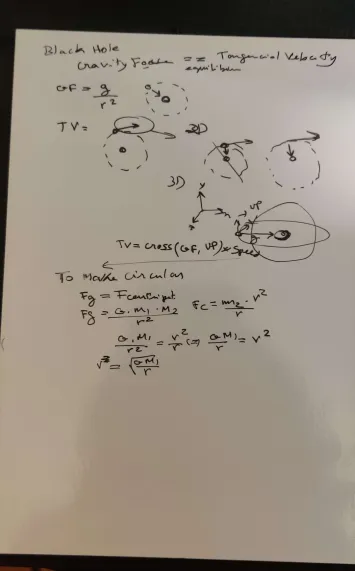 Black Hole
Gravity Force == Tangencial Velocity
equilibrium
GF = g / r²
TV =
2D
3D
UP
TV = cross(GF, UP) * Speed
To Make circular
Fg = Fcentripet
Fg = G. M1 . M2 / r²   Fc = m2 . v² / r
G. M1 / r² = v² / r (=) G M1 / r = v²
v = √(G M1 / r)